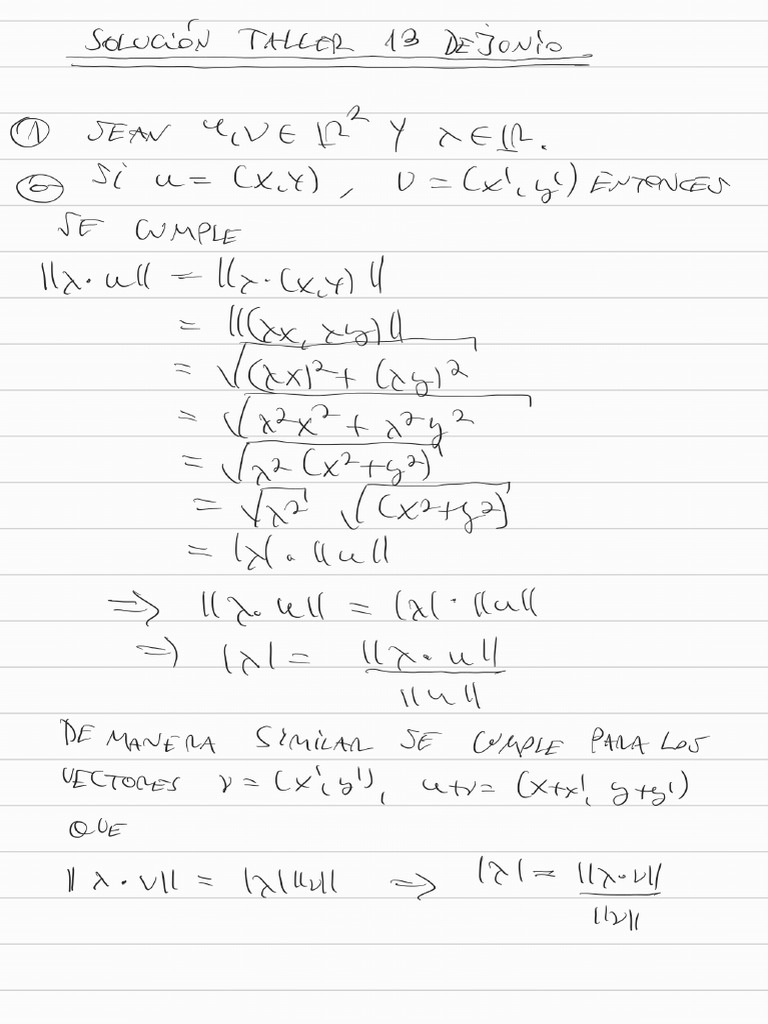 SOLUCIÓN TALLER 13 DE JUNIO.
① SEAN u, v ∈ ℝ² Y λ ∈ ℝ.
⓪ Si u = (x, y), v = (x', y') ENTONCES
SE CUMPLE
||λ·u|| = ||λ·(x, y)||
= ||(λx, λy)||
= √((λx)² + (λy)²)
= √(λ²x² + λ²y²)
= √(λ²(x² + y²))
= √(λ²) √((x² + y²))
= |λ|·||u||
⇒ ||λ·u|| = |λ|·||u||
⇒ |λ| = ||λ·u|| / ||u||
DE MANERA SIMILAR SE CUMPLE PARA LOS
VECTORES v = (x', y'), u+v = (x+x', y+y')
QUE
||λ·v|| = |λ| ||v|| ⇒ |λ| = ||λ·v|| / ||v||